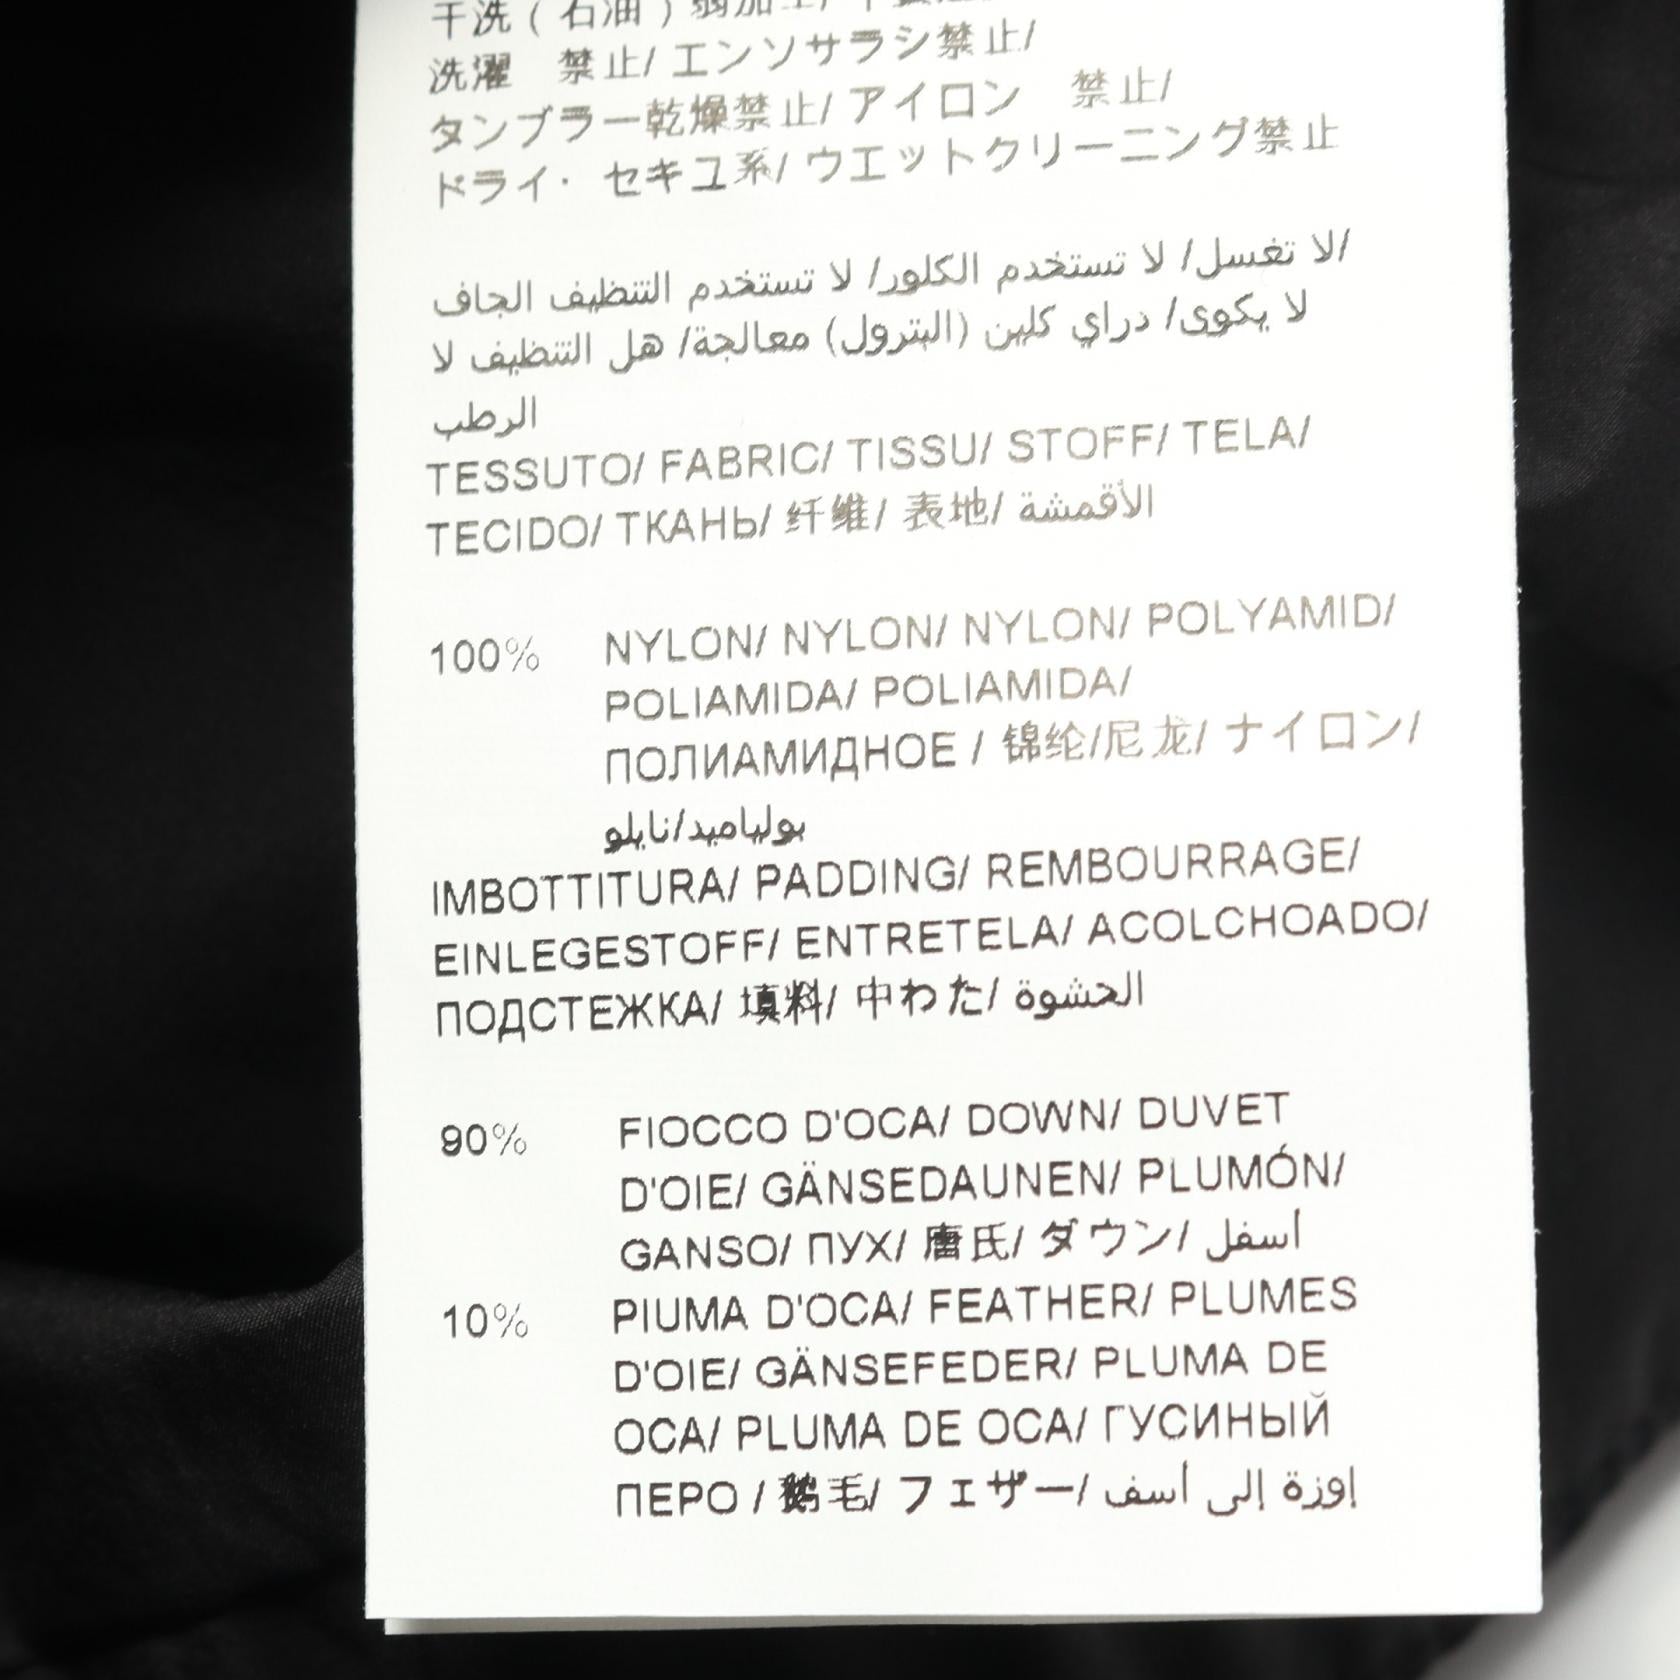 干洗 ( 石油 )
洗濯 禁止/ エンソサラシ禁止/
タンブラー乾燥禁止/ アイロン 禁止/
ドライ・ セキユ系/ ウエットクリーニング禁止
لا تغسل/ لا تستخدم الكلور/ لا تستخدم التنظيف الجاف/
لا يكوى/ دراي كلين (البترول) معالجة/ هل التنظيف لا
الرطب
TESSUTO/ FABRIC/ TISSU/ STOFF/ TELA/
TECIDO/ ТКАНЬ/ 纤维/ 表地/ الأقمشة
100% NYLON/ NYLON/ NYLON/ POLYAMID/
POLIAMIDA/ POLIAMIDA/
ПОЛИАМИДНОЕ / 锦纶/尼龙/ ナイロン/
بولياميد/نايلو
IMBOTTITURA/ PADDING/ REMBOURRAGE/
EINLEGESTOFF/ ENTRETELA/ ACOLCHOADO/
ПОДСТЕЖКА/ 填料/ 中わた/ الحشوة
90% FIOCCO D'OCA/ DOWN/ DUVET
D'OIE/ GÄNSEDAUNEN/ PLUMÓN/
GANSO/ ПУХ/ 唐氏/ ダウン/ أسفل
10% PIUMA D'OCA/ FEATHER/ PLUMES
D'OIE/ GÄNSEFEDER/ PLUMA DE
OCA/ PLUMA DE OCA/ ГУСИНЫЙ
ПЕРО / 鹅毛/ フェザー/ إوزة إلى أسف